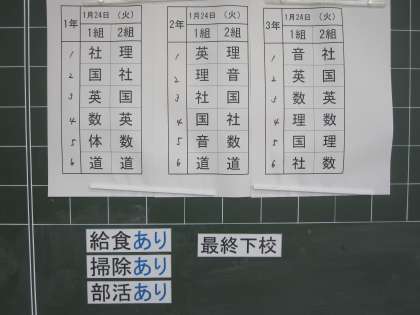 1年 1月24日 (火)
1組 2組
1 社 理
2 国 社
3 英 国
4 数 英
5 体 数
6 道 道
2年 1月24日 (火)
1組 2組
1 英 理
2 理 音
3 社 国
4 国 社
5 音 数
6 道 道
3年 1月24日 (火)
1組 2組
1 音 社
2 英 国
3 数 英
4 理 数
5 国 理
6 社 数
給食あり
掃除あり
部活あり
最終下校